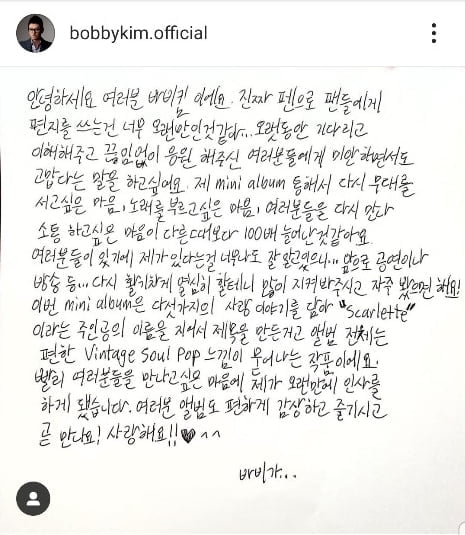 bobbykim.official
안녕하세요 여러분 바비킴 이에요. 진짜 펜으로 팬들에게
편지를 쓰는건 너무 오랜만인것같다... 오랫동안 기다리고
이해해주고 끊임없이 응원 해주신 여러분들에게 미안하면서도
고맙다는 말을 하고싶어요. 제 mini album 통해서 다시 무대를
서고싶은 마음, 노래를 부르고싶은 마음, 여러분들을 다시 만나
소통 하고싶은 마음이 다른때보다 100배 늘어난것같아요.
여러분들이 있기에 제가 있다는걸 너무나도 잘 알고있으니... 앞으로 공연이나
방송 등... 다시 활기차게 열심히 할테니 많이 지켜봐주시고 자주 봤으면 해요!
이번 mini album은 다섯가지의 사랑 이야기를 담아 "Scarlette"
이라는 주인공의 이름을 지어서 제목을 만든거고 앨범 전체는
편한 Vintage Soul Pop 느낌이 묻어나는 작품이에요.
빨리 여러분들을 만나고싶은 마음에 제가 오랜만에 인사를
하게 됐습니다. 여러분 앨범도 편하게 감상하고 즐기시고
곧 만나요! 사랑해요!!♥^^
바비가...